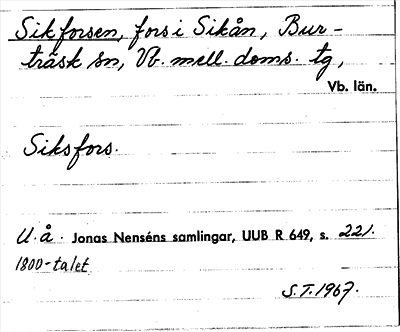 Sikforsen, fors i Sikån, Bur-
träsk sn, Vb. mell. doms. tg,
Vb. län.
Siksfors.
U. å. Jonas Nenséns samlingar, UUB R 649, s. 221.
1800-talet
S.T. 1967.